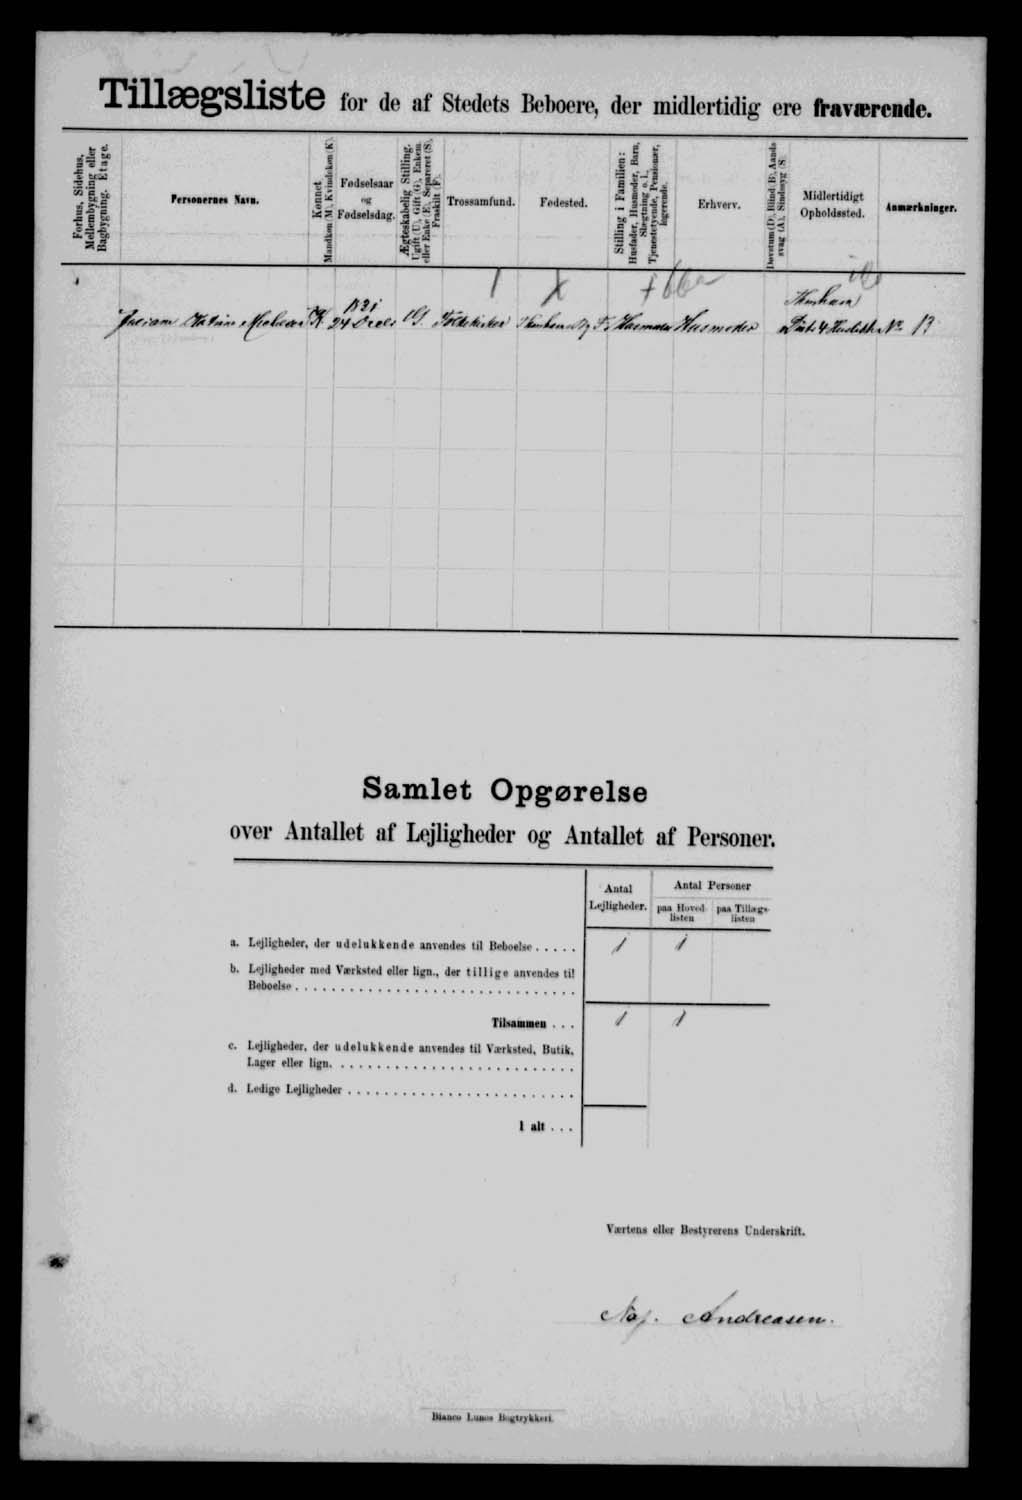 Tillægsliste for de af Stedets Beboere, der midlertidig ere fraværende.
Forhus, Sidehus, Mellembygning eller Bagbygning. Etage.
Personernes Navn.
Kønnet
Mandkøn (M), Kvindekøn (K)
Fødselsaar
og
Fødselsdag.
Ægteskabelig Stilling.
Ugift (U), Gift (G), Enkem.
eller Enke (E), Separeret (S),
Fraskilt (F).
Trossamfund.
Fødested.
Stilling i Familien:
Husfader, Husmoder, Barn,
Slægtning o. l.,
Tjenestetyende, Pensionær,
logerende.
Erhverv.
Døvstum (D), Blind (B), Aands
svag (A), Sindssyg (S)
Midlertidigt
Opholdssted.
Anmærkninger.
K 24 G Husmoder Husmoder No 13
Samlet Opgørelse
over Antallet af Lejligheder og Antallet af Personer.
Antal
Lejligheder.
Antal Personer
paa Hoved-
listen
paa Tillægs-
listen
a. Lejligheder, der udelukkende anvendes til Beboelse ..... 1 1
b. Lejligheder med Værksted eller lign., der tillige anvendes til
Beboelse ..............................
Tilsammen ... 1 1
c. Lejligheder, der udelukkende anvendes til Værksted, Butik,
Lager eller lign. ..........................
d. Ledige Lejligheder .........................
I alt ...
Værtens eller Bestyrerens Underskrift.
Andreasen.
Bianco Lunos Bogtrykkeri.